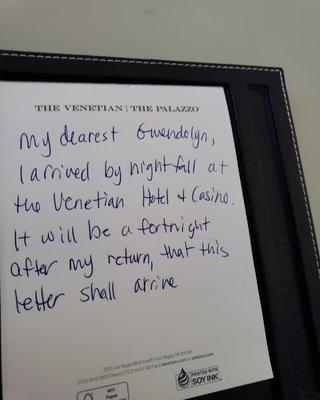 THE VENETIAN | THE PALAZZO
My dearest Gwendolyn,
I arrived by nightfall at
the Venetian Hotel & Casino.
It will be a fortnight
after my return, that this
letter shall arrive
3355 Las Vegas Blvd South | Las Vegas, NV 89109
(702) 414.1000 Direct | (702) 414.1100 Fax | www.venetian.com or palazzo.com
MIX
Paper
PRINTED WITH
SOY INK